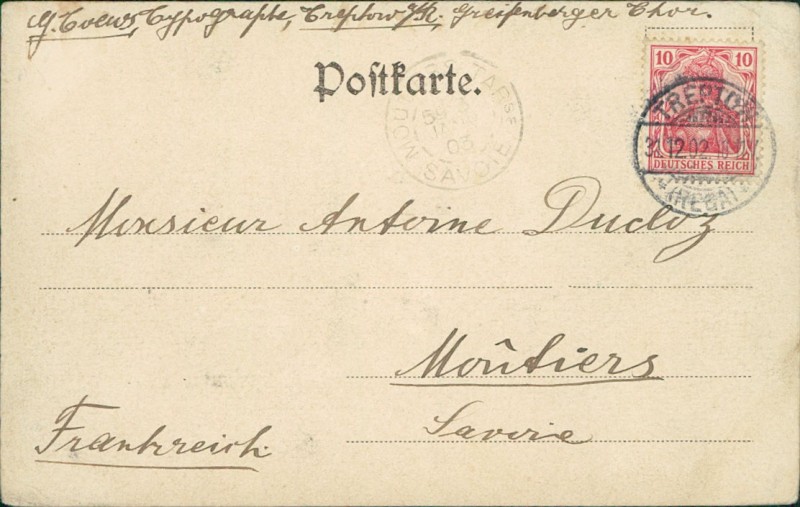 G. Toews, Typographe, Treptow a/R. Greifenberger Thor.
Postkarte.
10 10
DEUTSCHES REICH
TREPTOW
31.12.02.
(REGA)
MOUTIERS TARSE
03
SAVOIE
Monsieur Antoine Ducloz
Moûtiers
Savoie
Frankreich